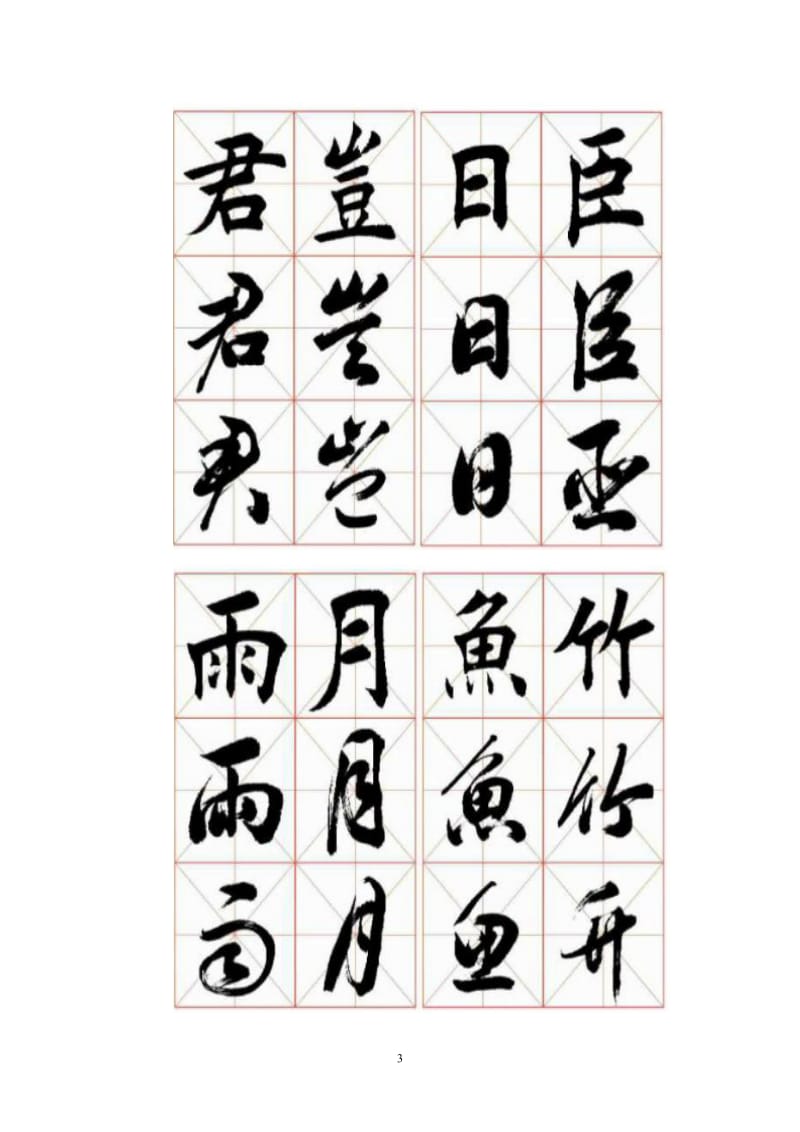 君豈日臣
君豈日臣
君豈日臣
雨月魚竹
雨月魚竹
雨月魚竹
3